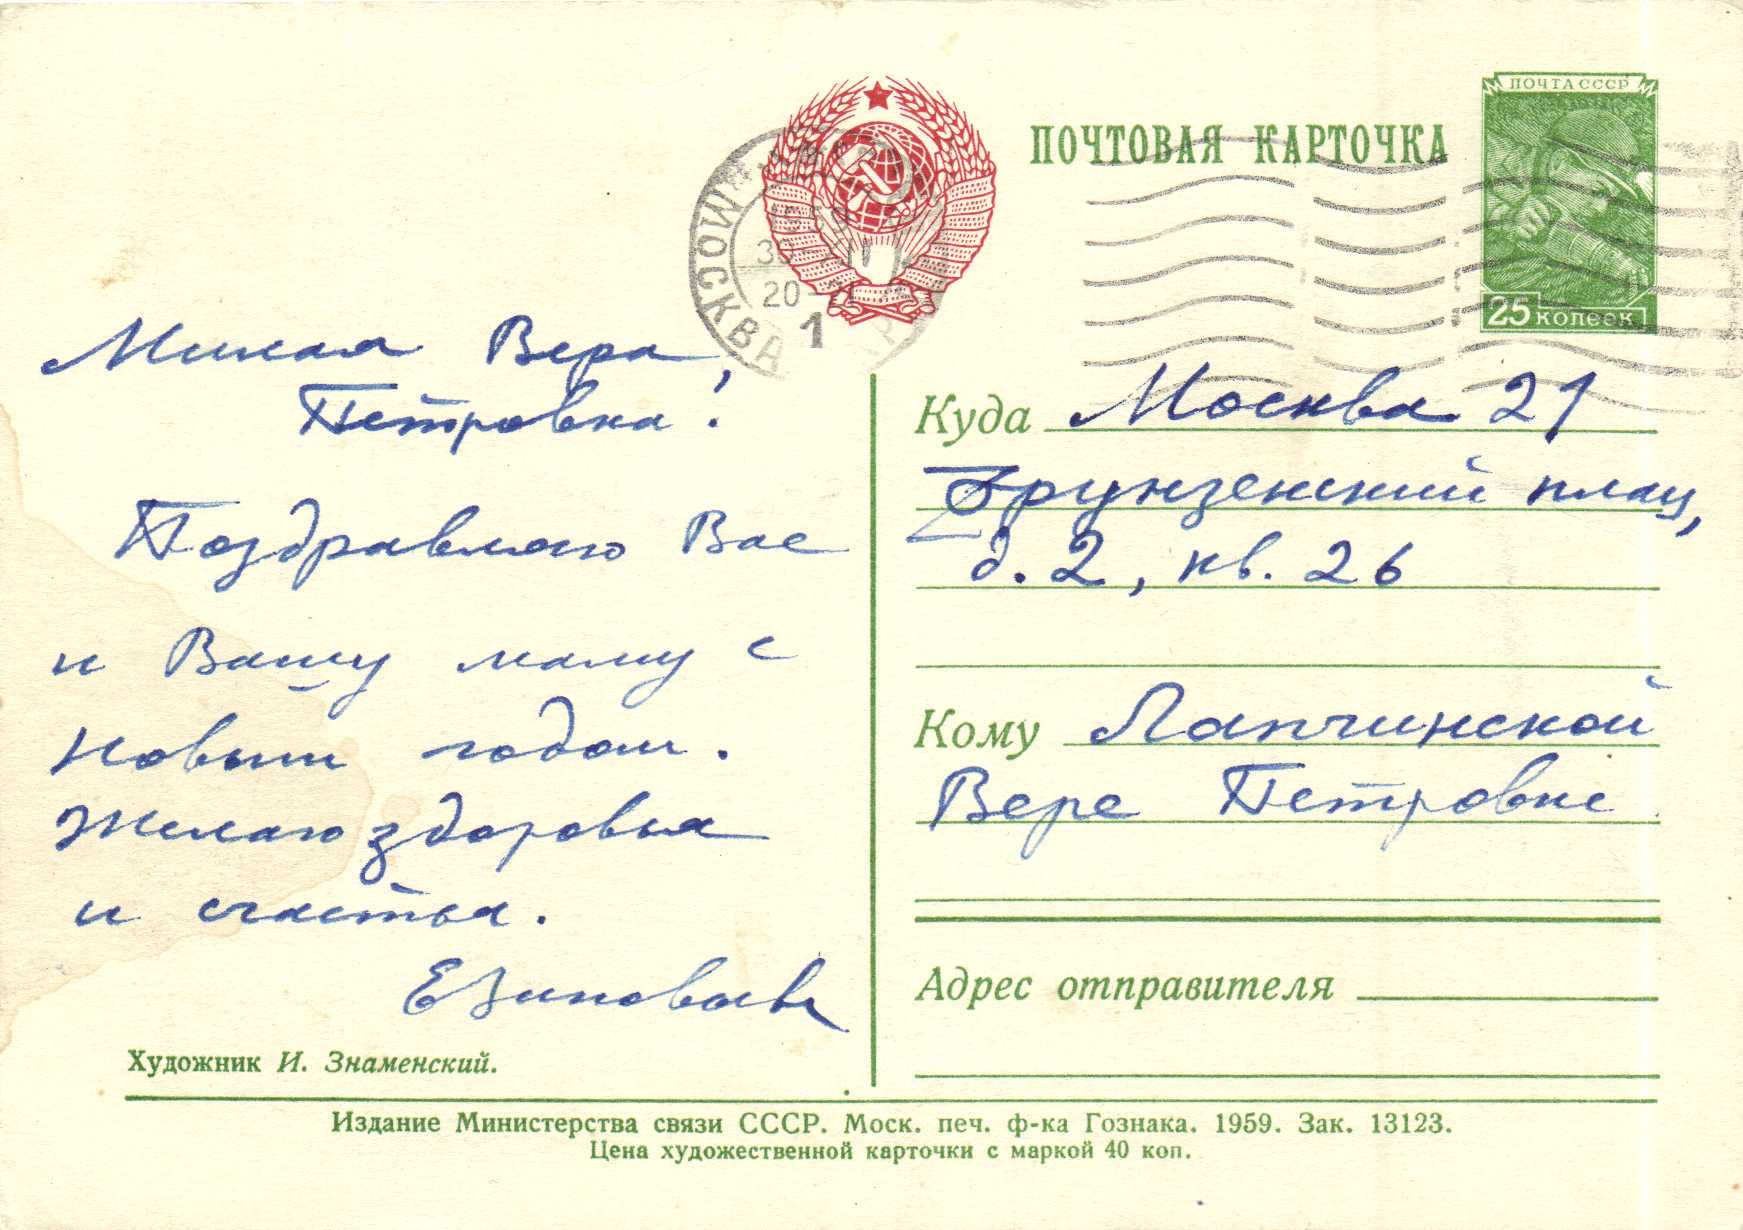 ПОЧТОВАЯ КАРТОЧКА
ПОЧТА СССР
25 копеек
МОСКВА
1959
20
1
Милая Вера
Петровна!
Поздравляю Вас
и Вашу маму с
Новым годом.
Желаю здоровья
и счастья.
Художник И. Знаменский.
Куда Москва 21
Фрунзенский плац,
д. 2, кв. 26
Кому Лапчинской
Вере Петровне
Адрес отправителя
Издание Министерства связи СССР. Моск. печ. ф-ка Гознака. 1959. Зак. 13123.
Цена художественной карточки с маркой 40 коп.